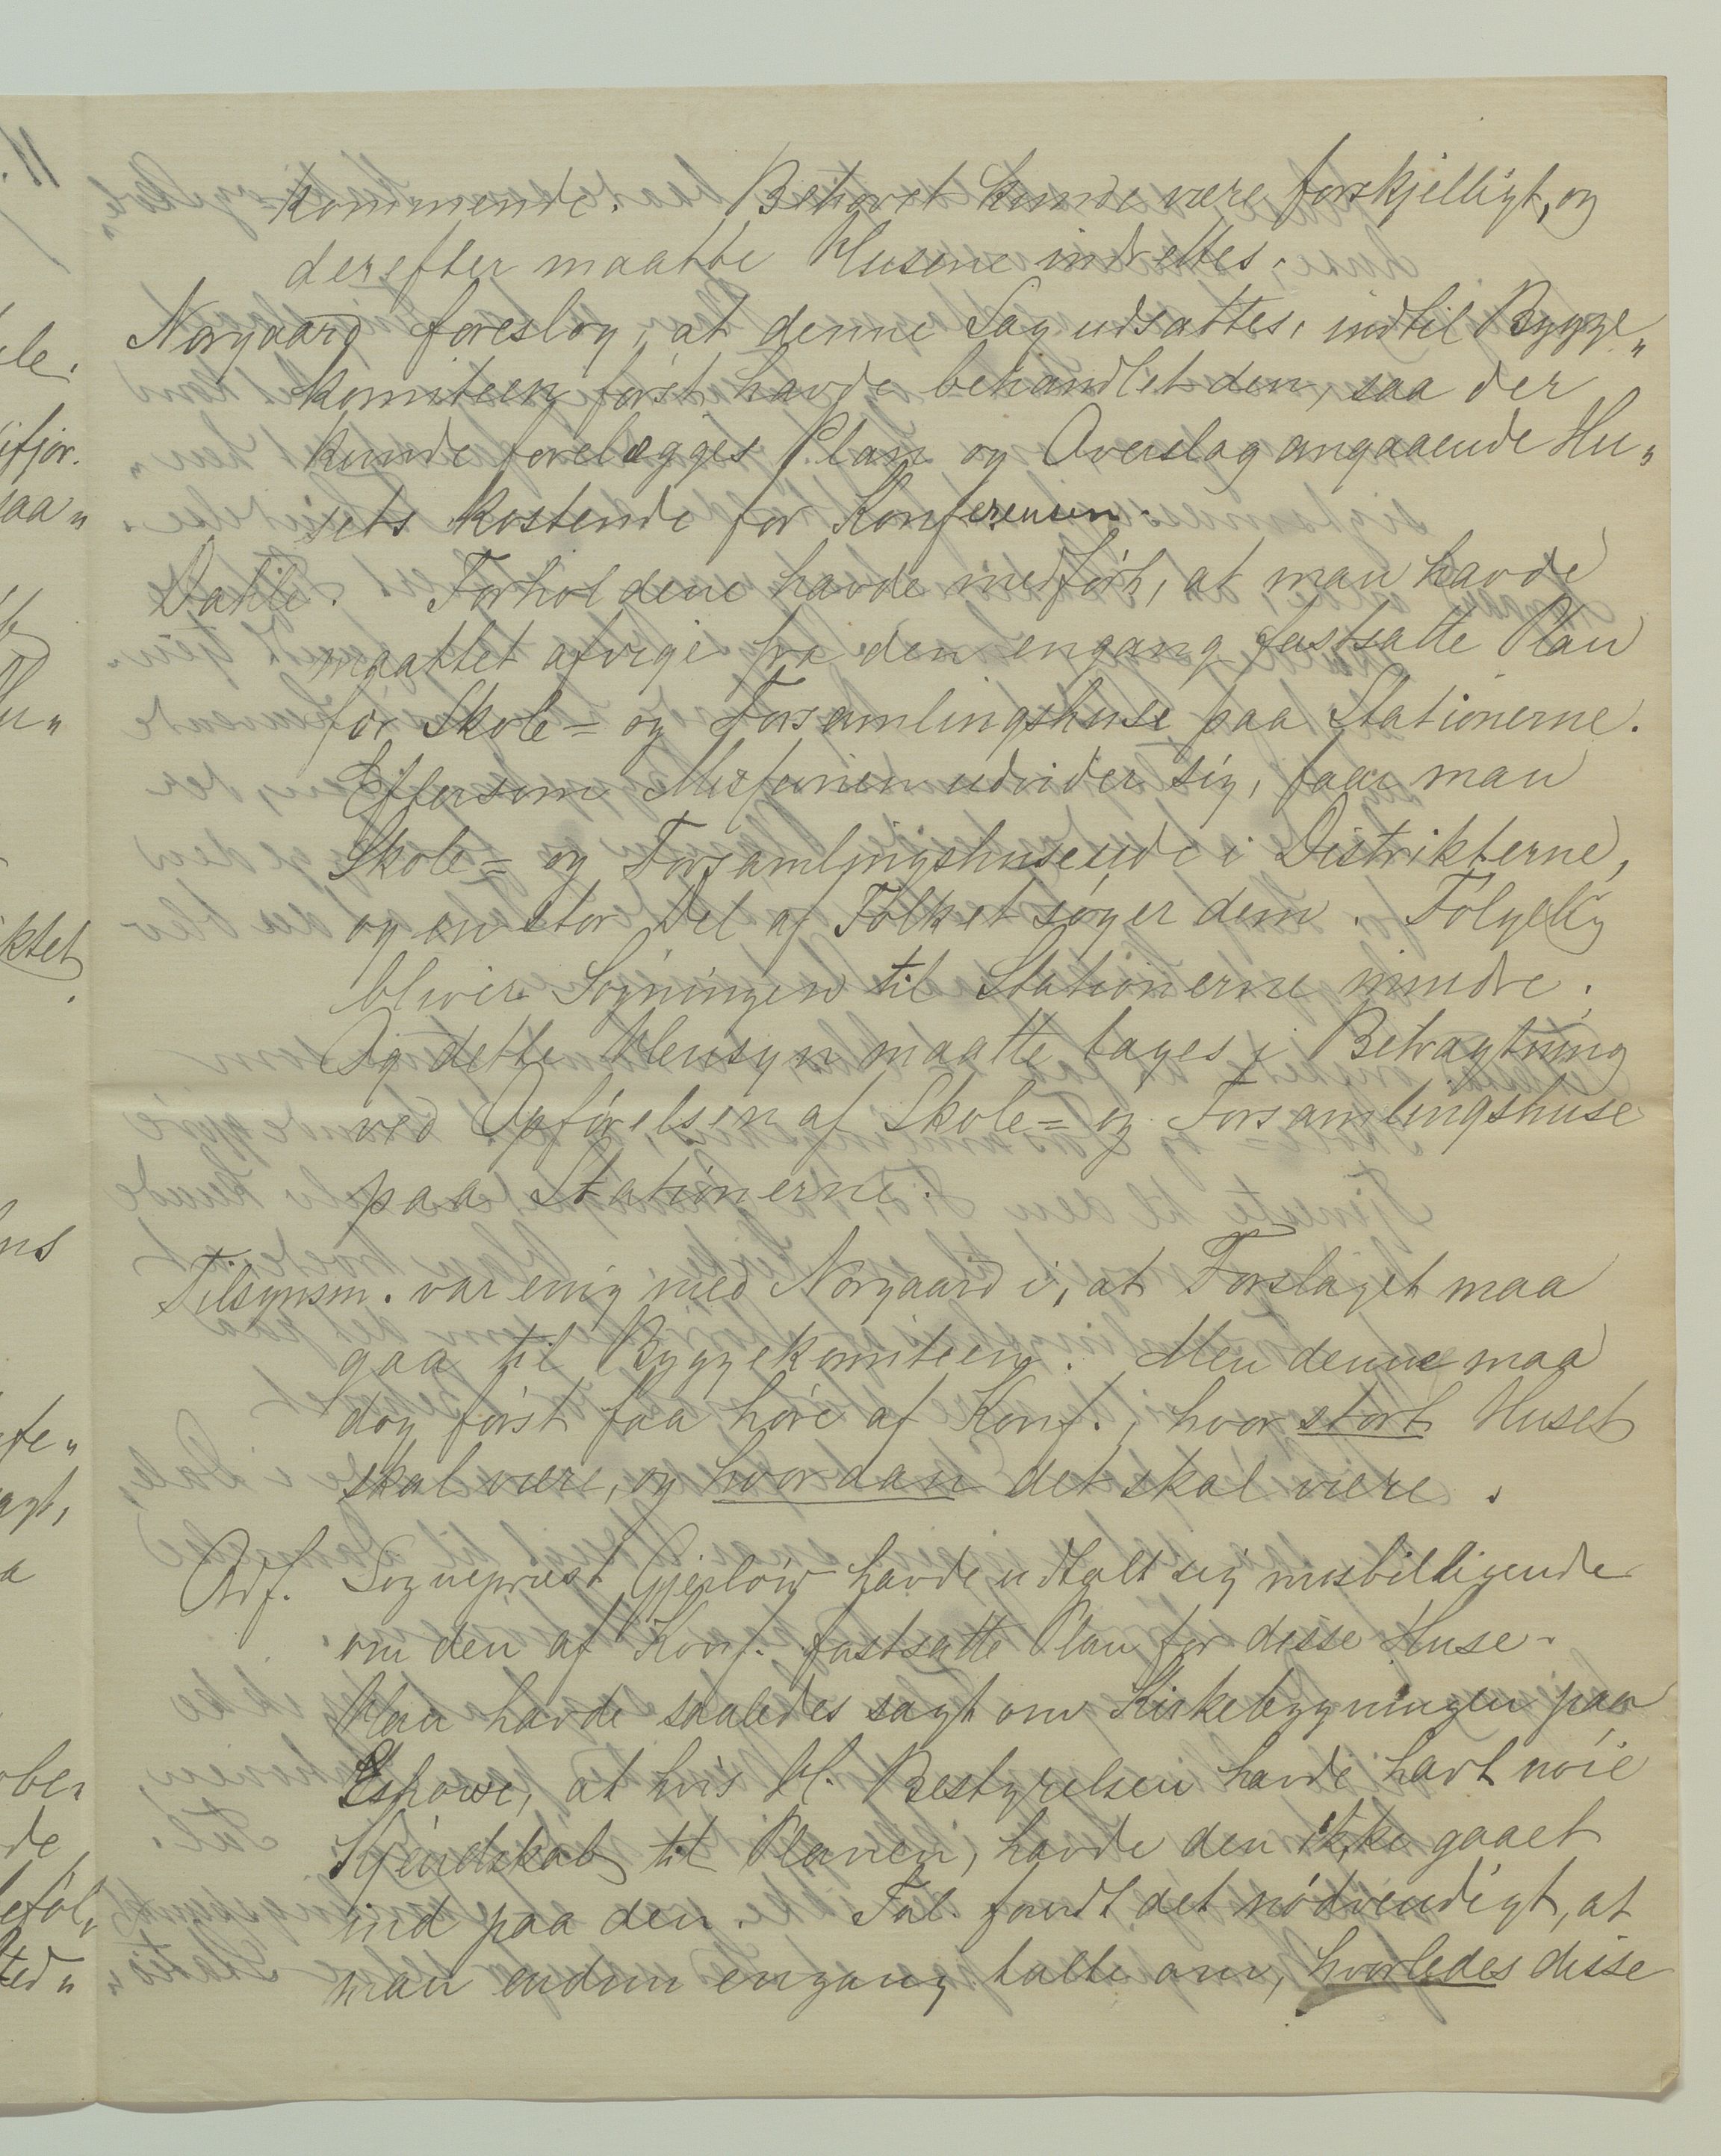 kommende. Behovet kunde være forskjelligt, og
derefter maatte Husene indrettes.
Norgaard foreslog, at denne Sag udsattes, indtil Bygge„
komiteen först havde behandlet den, saa der
kunde forelægges Plan og Overslag angaaende Hu„
sets kostende for Konferensen.
Dahle. Forholdene havde medfört, at man havde
maattet afvige fra den engang fastsatte Plan
for Skole= og Forsamlingshuse paa Stationerne.
Eftersom Missionen udvider sig, faar man
Skole= og Forsamlingshuse ude i Distrikterne,
og en stor Del af Folket söger dem. Fölgelig
bliver Sögningen til Stationerne mindre.
Og dette Hensyn maatte tages i Betragtning
ved Opförelsen af Skole= og Forsamlingshuse
paa Stationerne.
Tilsynsm. var enig med Norgaard i, at Forslaget maa
gaa til Byggekomiteen. Men denne maa
dog först faa höre af Konf., hvor stort Huset
skal være, og hvordan det skal være.
Adf. Sogneprest Gjerlöw havde udtalt sig misbilligende
om den af Konf. fastsatte Plan for disse Huse.
Han havde saaledes sagt om Kirkebygningen paa
Eshowe, at hvis H. Bestyrelsen havde havt nöie
Kjendskab til Planen, havde den ikke gaaet
ind paa den. Tal. fandt det nödvendigt, at
man endnu engang talte om, hvorledes disse